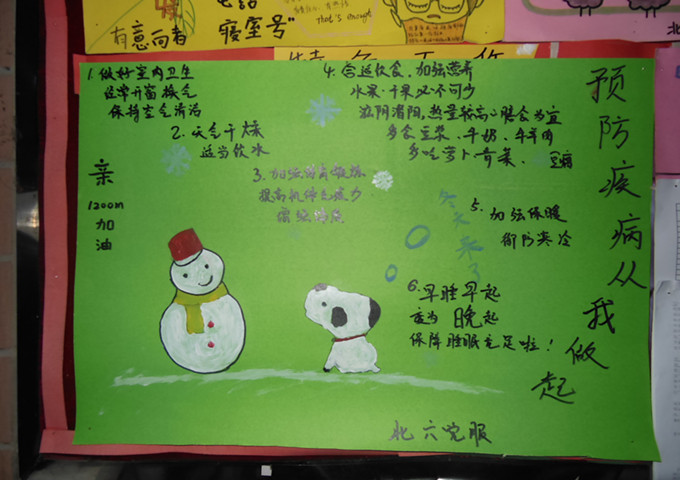 有意向者
寝室号"
that's enough
1. 做好室内卫生
经常开窗换气
保持空气清洁
2. 天气干燥
适当饮水
3. 加强体育锻炼
提高机体免疫力
增强体质
4. 合适饮食、加强营养
水果、干果必不可少
滋阴潜阳,热量较高的膳食为宜
多食豆浆、牛奶、牛羊肉
多吃萝卜、青菜、豆腐
5. 加强保暖
御防寒冷
6. 早睡早起
适当晚起
保障睡眠充足啦!
冬天来了
亲
1200m
加
油
预防疾病从我做起
北六党服